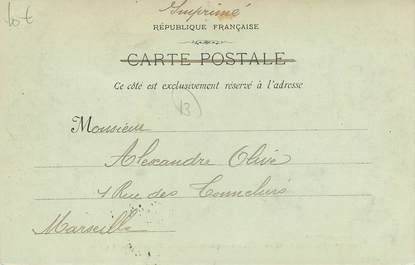 lot
Imprimé
RÉPUBLIQUE FRANÇAISE
CARTE POSTALE
Ce côté est exclusivement réservé à l'adresse
13
Monsieur
Alexandre Olive
1 Rue des Tonneliers
Marseille